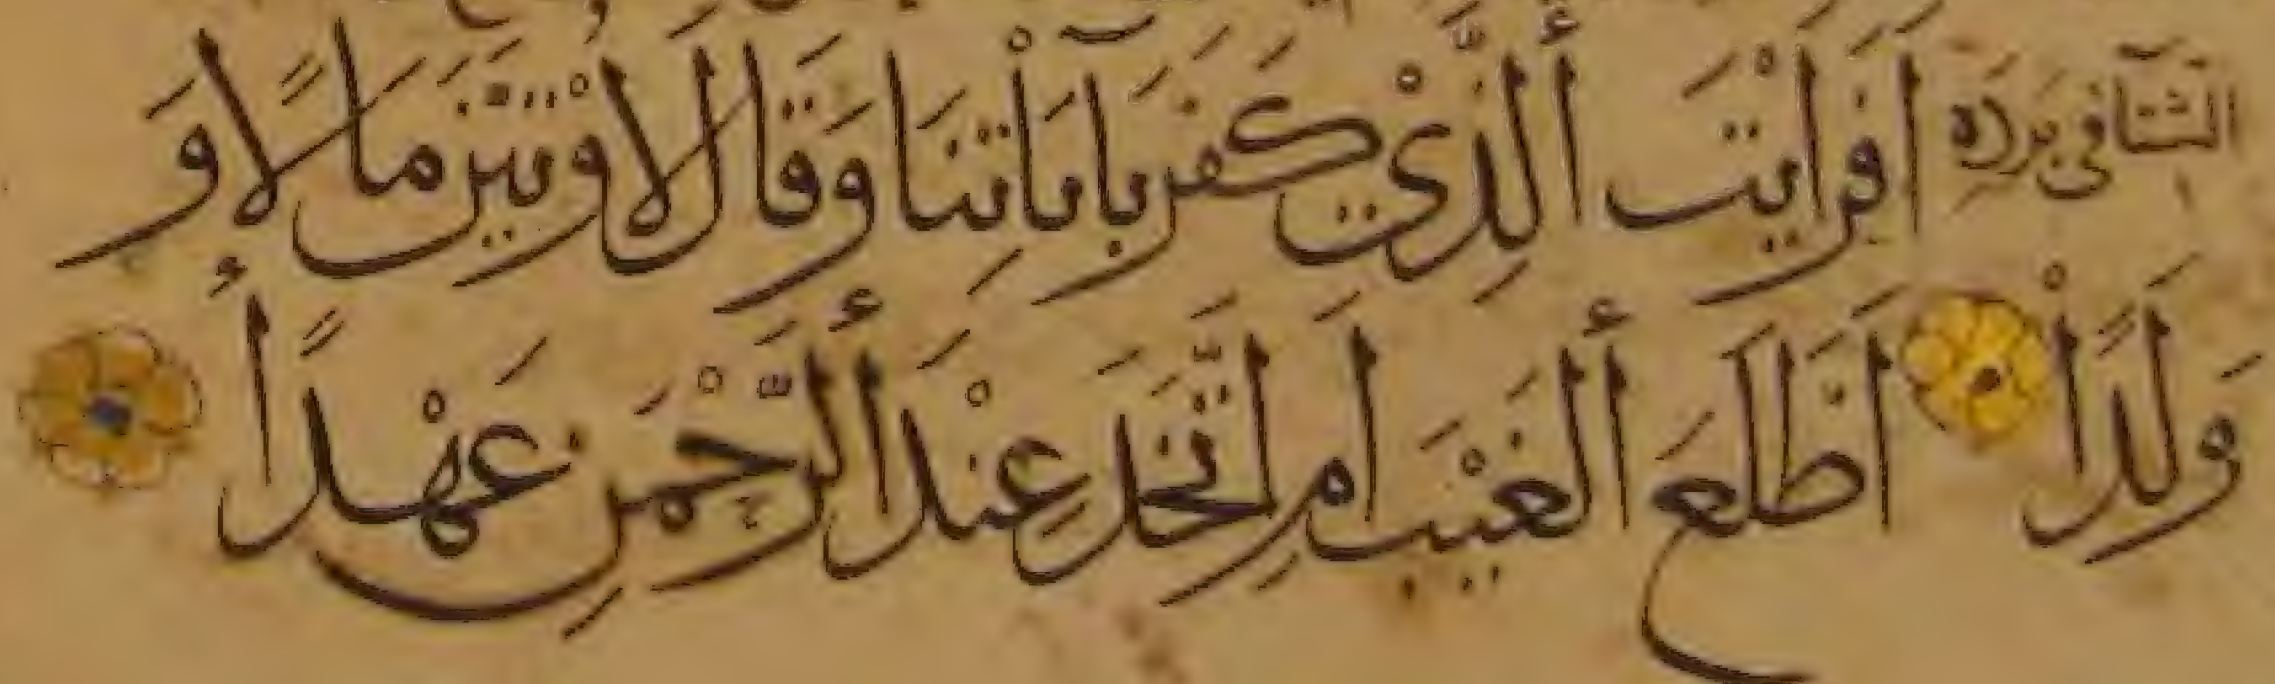 الشتا فى برده اَفَرَاَيْتَ اَلَّذِيْ كَفَرَ بِآيَاْتِنَا وَقَالَ لَاُوْتَيَنَّ مَالًا وَ
وَلَدًاْ اَطَّلَعَ اَلْغَيْبَ اَمِ اتَّخَذَ عِنْدَ اَلرَّحْمَنِ عَهْدًا